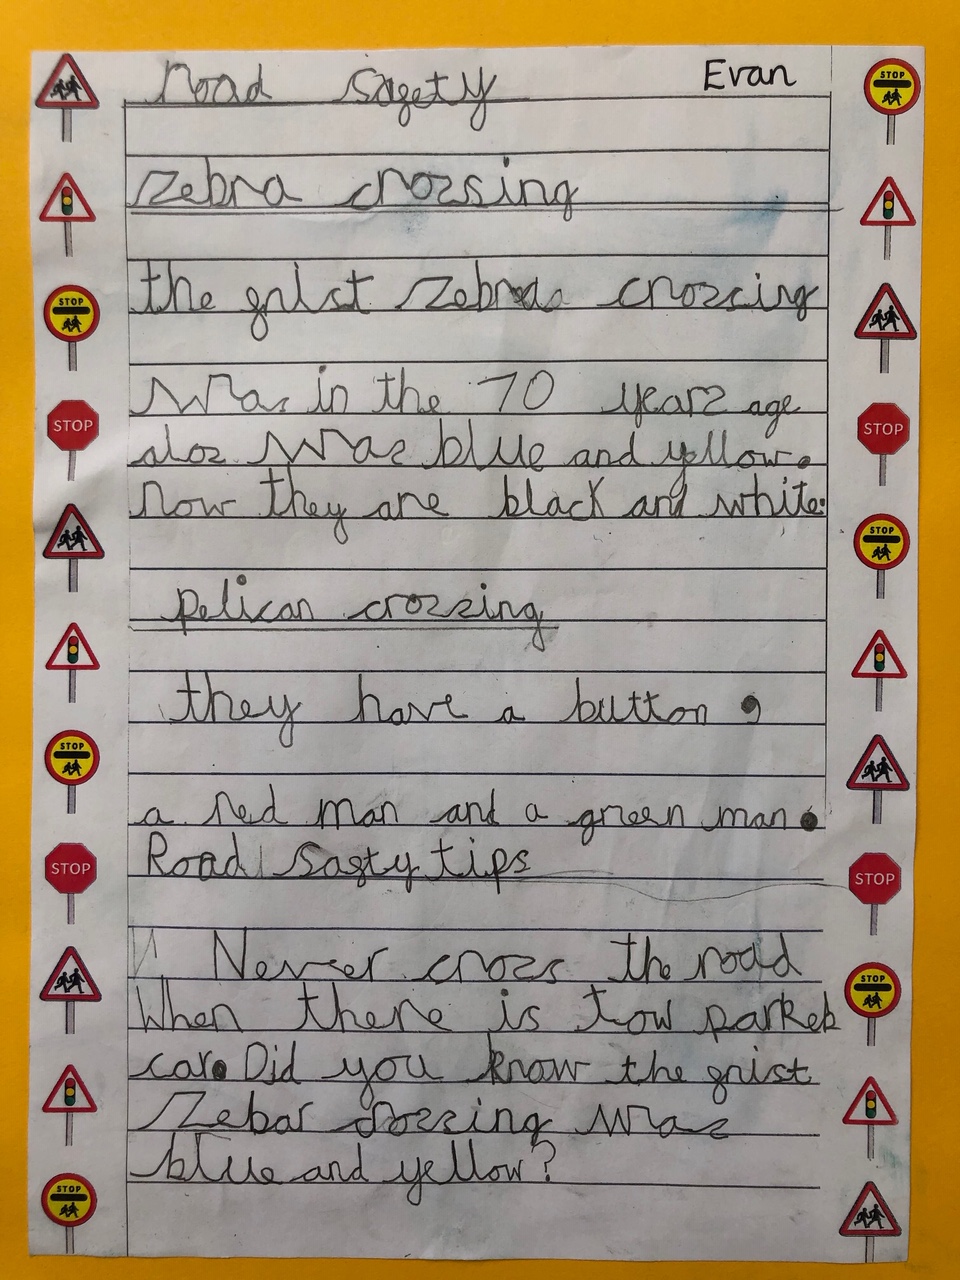 Road sagety
Evan
STOP
zebra crossing
the grist zebra crossing
STOP
was in the 70 years age
STOP
STOP
alos was blue and yellow.
now they are black and white.
STOP
pelican crossing
they have a button,
STOP
a red man and a green man.
Road sagty tips
STOP
STOP
Never cross the road
STOP
When there is tow parked
car. Did you know the grist
zebar crossing was
blue and yellow?
STOP